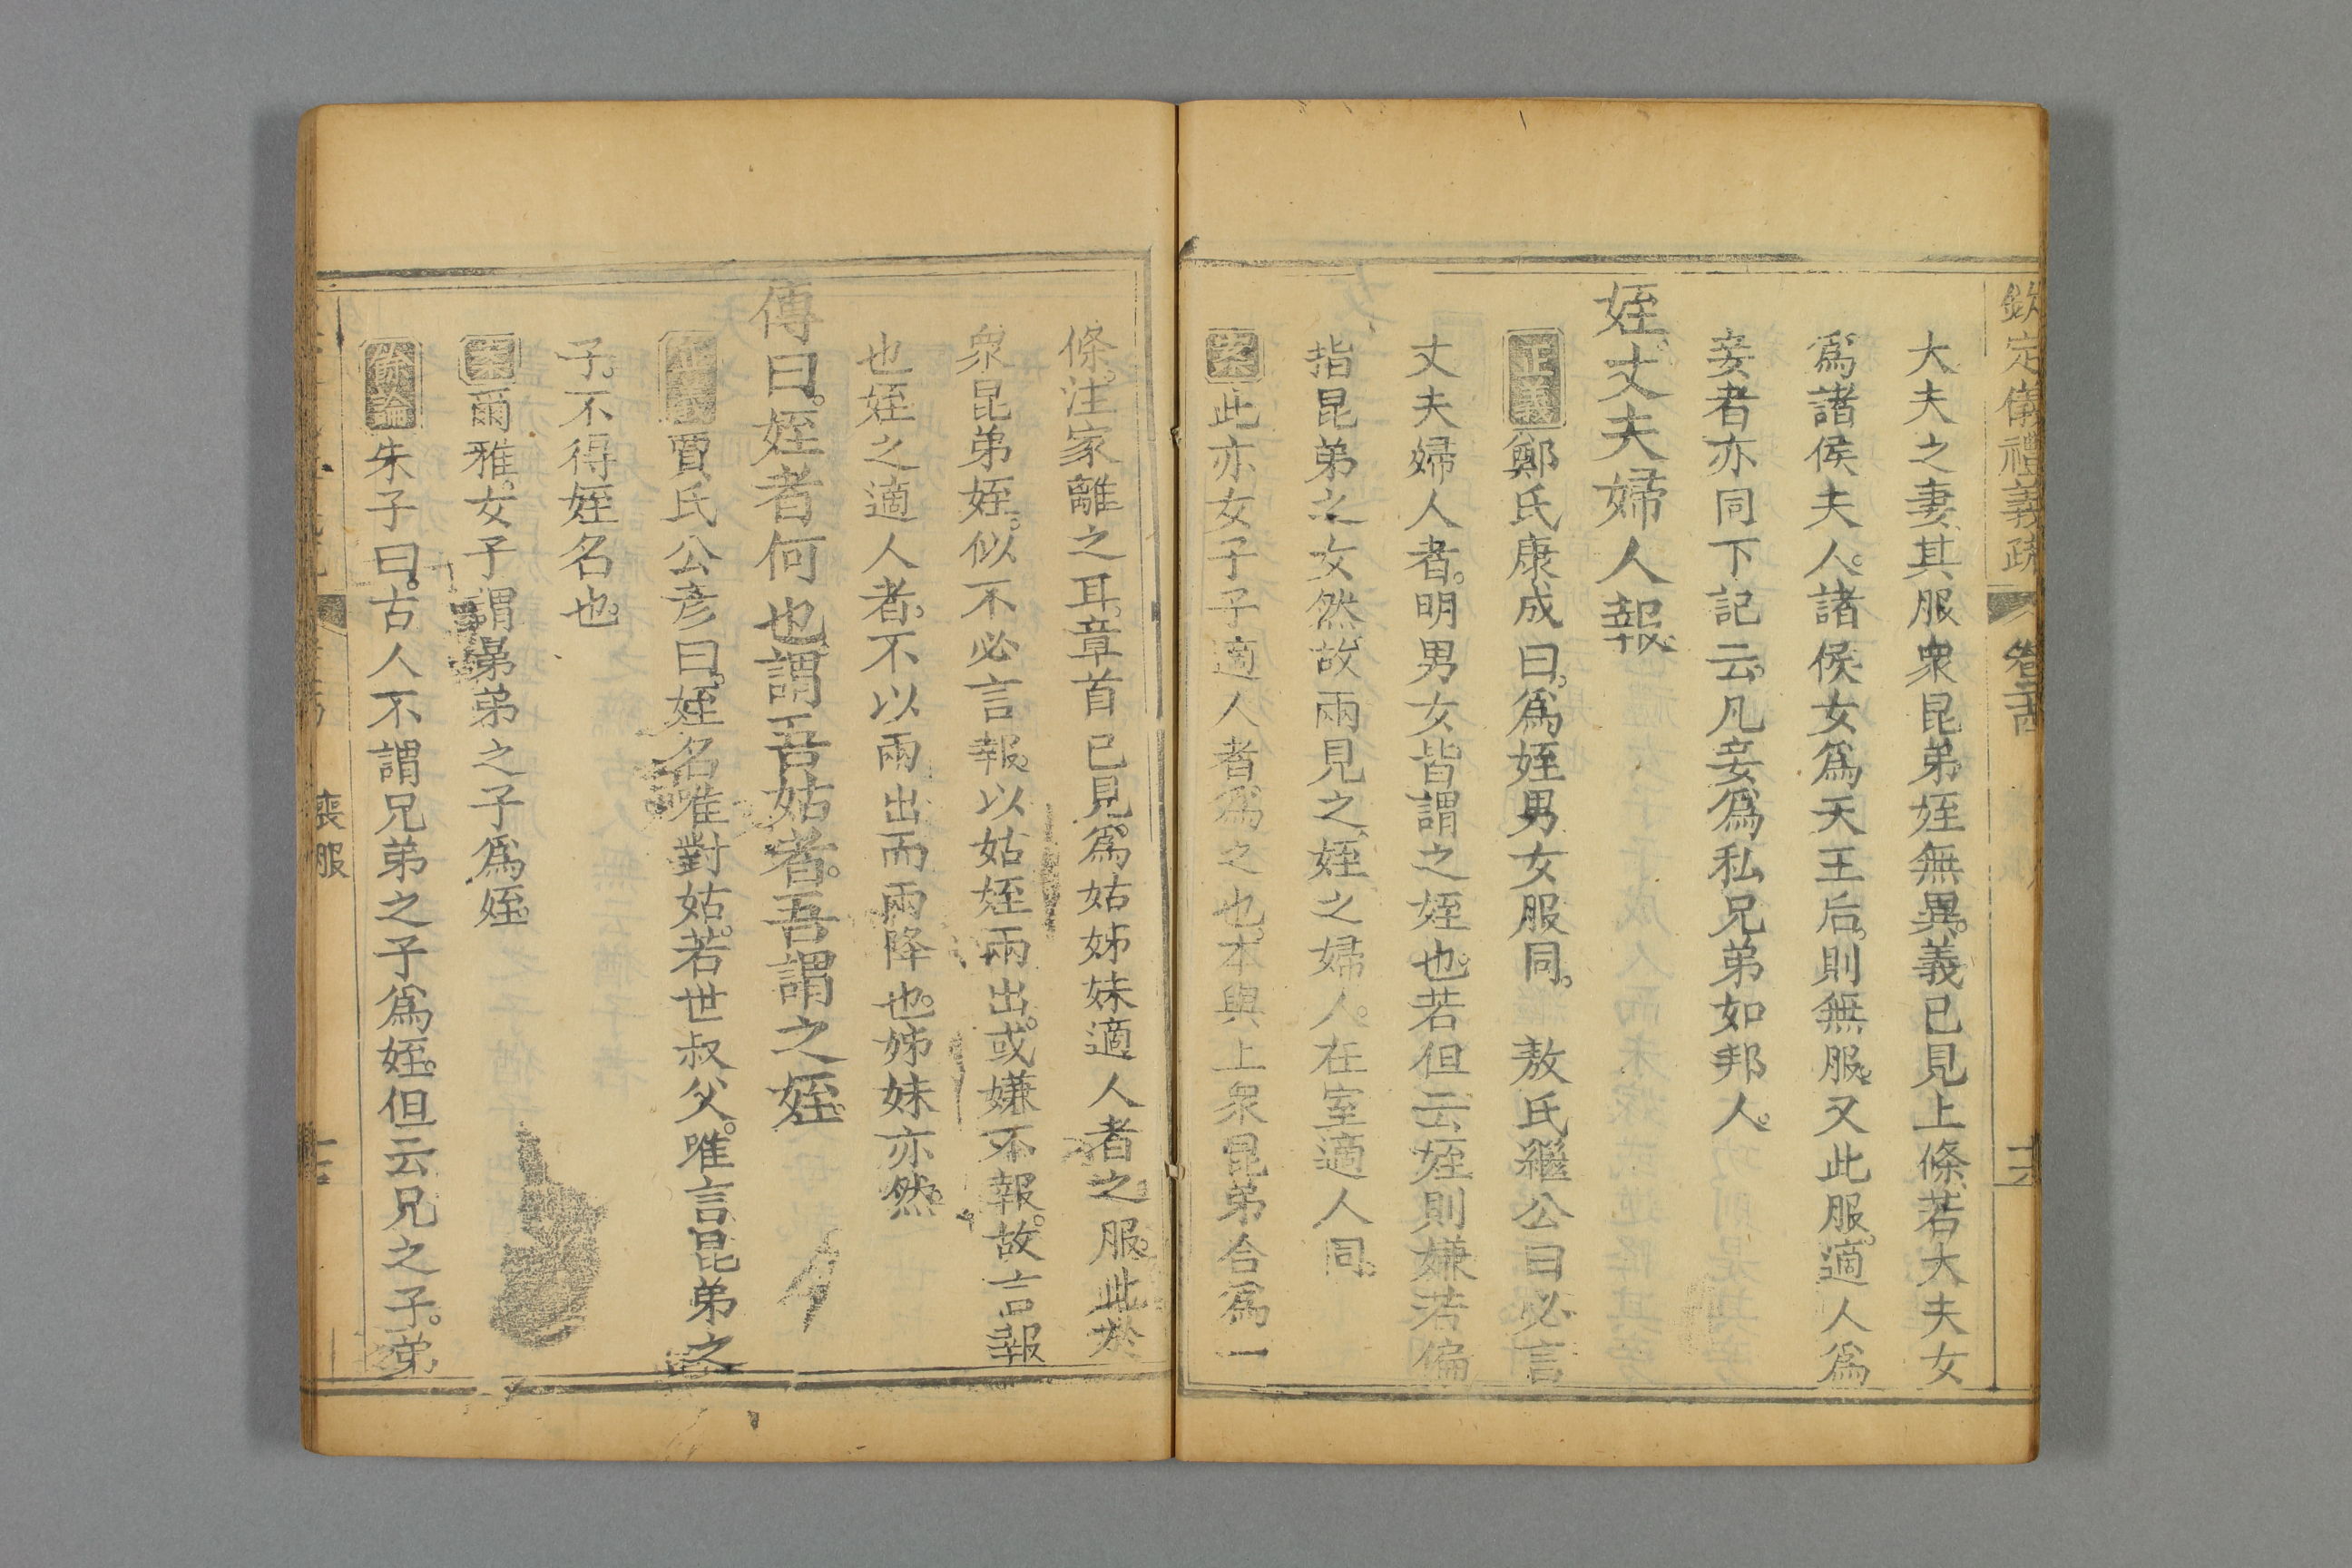 欽定儀禮義疏 卷二十四 十六
大夫之妻其服衆昆弟姪無異義已見上條若大夫女
爲諸侯夫人諸侯女爲天王后則無服又此服適人爲
妾者亦同下記云凡妾爲私兄弟如邦人
姪丈夫婦人報
正義鄭氏康成曰爲姪男女服同 敖氏繼公曰必言
丈夫婦人者明男女皆謂之姪也若但云姪則嫌若偏
指昆弟之女然故兩見之姪之婦人在室適人同
案此亦女子子適人者爲之也本與上衆昆弟合爲一
條注家離之耳章首已見爲姑姊妹適人者之服此於
衆昆弟姪似不必言報以姑姪兩出或嫌不報故言報
也姪之適人者不以兩出而兩降也姊妹亦然
傳曰姪者何也謂吾姑者吾謂之姪
正義賈氏公彦曰姪名唯對姑若世叔父唯言昆弟之
子不得姪名也
案爾雅女子謂晜弟之子爲姪
餘論朱子曰古人不謂兄弟之子爲姪但云兄之子弟
喪服